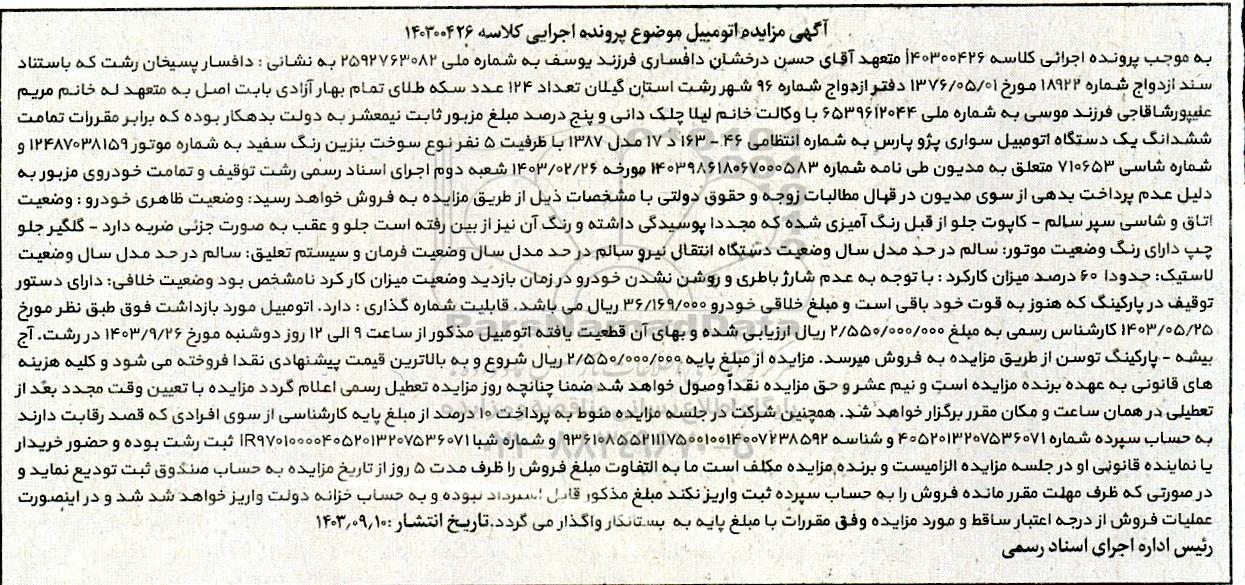 آگهی مزایده اتومبیل موضوع پرونده اجرایی کلاسه ۱۴۰۳۰۰۴۲۶
به موجب پرونده اجرائی کلاسه ۱۴۰۳۰۰۴۲۶ متعهد آقای حسن درخشان دافساری فرزند یوسف به شماره ملی ۲۵۹۲۷۶۳۰۸۲ به نشانی : دافسار پسیخان رشت که باستناد
سند ازدواج شماره ۱۸۹۲۲ مورخ ۱۳۷۶/۰۵/۰۱ دفتر ازدواج شماره ۹۶ شهر رشت استان گیلان تعداد ۱۲۴ عدد سکه طلای تمام بهار آزادی بابت اصل به متعهد له خانم مریم
علیپورشاقاجی فرزند موسی به شماره ملی ۶۵۳۹۶۱۲۰۴۴ با وکالت خانم لیلا چلک دانی و پنج درصد مبلغ مزبور ثابت نیمعشر به دولت بدهکار بوده که برابر مقررات تمامت
ششدانگ یک دستگاه اتومبیل سواری پژو پارس به شماره انتظامی ۴۶ – ۱۶۳ د ۱۷ مدل ۱۳۸۷ با ظرفیت ۵ نفر نوع سوخت بنزین رنگ سفید به شماره موتور ۱۲۴۸۷۰۳۸۱۵۹ و
شماره شاسی ۷۱۰۶۵۳ متعلق به مدیون طی نامه شماره ۱۴۰۳۹۸۶۱۸۰۶۷۰۰۰۵۸۳ مورخه ۱۴۰۳/۰۲/۲۶ شعبه دوم اجرای اسناد رسمی رشت توقیف و تمامت خودروی مزبور به
دلیل عدم پرداخت بدهی از سوی مدیون در قبال مطالبات زوجه و حقوق دولتی با مشخصات ذیل از طریق مزایده به فروش خواهد رسید: وضعیت ظاهری خودرو : وضعیت
اتاق و شاسی سپر سالم – کاپوت جلو از قبل رنگ آمیزی شده که مجددا پوسیدگی داشته و رنگ آن نیز از بین رفته است جلو و عقب به صورت جزئی ضربه دارد – گلگیر جلو
چپ دارای رنگ وضعیت موتور: سالم در حد مدل سال وضعیت دستگاه انتقال نیرو سالم در حد مدل سال وضعیت فرمان و سیستم تعلیق: سالم در حد مدل سال وضعیت
لاستیک: حدودا ۶۰ درصد میزان کارکرد : با توجه به عدم شارژ باطری و روشن نشدن خودرو در زمان بازدید وضعیت میزان کار کرد نامشخص بود وضعیت خلافی: دارای دستور
توقیف در پارکینگ که هنوز به قوت خود باقی است و مبلغ خلافی خودرو ۳۶/۱۶۹/۰۰۰ ریال می باشد. قابلیت شماره گذاری : دارد. اتومبیل مورد بازداشت فوق طبق نظر مورخ
۱۴۰۳/۰۵/۲۵ کارشناس رسمی به مبلغ ۲/۵۵۰/۰۰۰/۰۰۰ ریال ارزیابی شده و بهای آن قطعیت یافته اتومبیل مذکور از ساعت ۹ الی ۱۲ روز دوشنبه مورخ ۱۴۰۳/۹/۲۶ در رشت. آج
بیشه – پارکینگ توسن از طریق مزایده به فروش میرسد. مزایده از مبلغ پایه ۲/۵۵۰/۰۰۰/۰۰۰ ریال شروع و به بالاترین قیمت پیشنهادی نقدا فروخته می شود و کلیه هزینه
های قانونی به عهده برنده مزایده است و نیم عشر و حق مزایده نقدا وصول خواهد شد ضمنا چنانچه روز مزایده تعطیل رسمی اعلام گردد مزایده با تعیین وقت مجدد بعد از
تعطیلی در همان ساعت و مکان مقرر برگزار خواهد شد. همچنین شرکت در جلسه مزایده منوط به پرداخت ۱۰ درصد از مبلغ پایه کارشناسی از سوی افرادی که قصد رقابت دارند
به حساب سپرده شماره ۴۰۵۲۰۱۳۲۰۷۵۳۶۰۷۱ و شناسه ۹۳۶۱۰۸۵۵۲۱۱۱۷۵۰۰۱۰۰۱۴۰۰۷۲۳۸۵۹۲ و شماره شبا IR۹۷۰۱۰۰۰۰۴۰۵۲۰۱۳۲۰۷۵۳۶۰۷۱ ثبت رشت بوده و حضور خریدار
یا نماینده قانونی او در جلسه مزایده الزامیست و برنده مزایده مکلف است ما به التفاوت مبلغ فروش را ظرف مدت ۵ روز از تاریخ مزایده به حساب صندوق ثبت تودیع نماید و
در صورتی که ظرف مهلت مقرر مانده فروش را به حساب سپرده ثبت واریز نکند مبلغ مذکور قابل استرداد نبوده و به حساب خزانه دولت واریز خواهد شد شد و در اینصورت
عملیات فروش از درجه اعتبار ساقط و مورد مزایده وفق مقررات با مبلغ پایه به بستانکار واگذار می گردد.تاریخ انتشار :۱۴۰۳,۰۹,۱۰
رئیس اداره اجرای اسناد رسمی